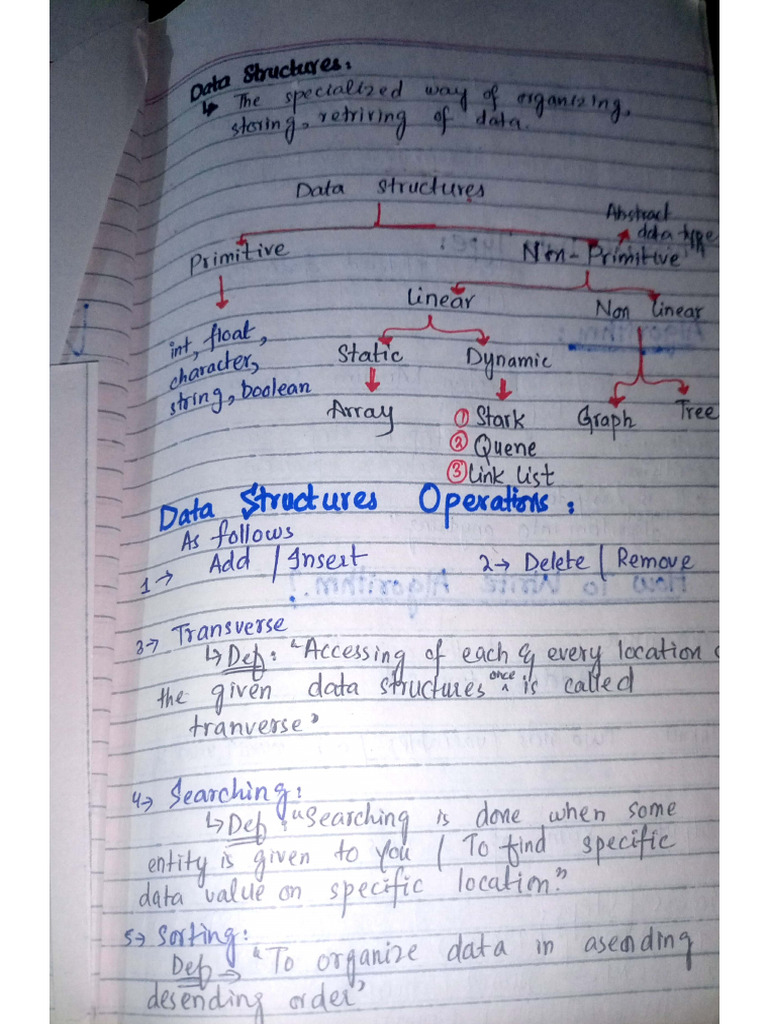 Data Structures:
↳ The specialized way of organizing,
storing, retriving of data.
Data structures
Abstract
data type
Primitive
Non-Primitive
Linear
Non linear
int, float,
character,
string, boolean
Static
Dynamic
Array
① Stark
② Quene
③ Link List
Graph
Tree
Data Structures Operations:
As follows
1→ Add / Insert
2→ Delete / Remove
3→ Transverse
↳ Def: "Accessing of each & every location
the given data structures once is called
tranverse"
4→ Searching:
↳ Def: "Searching is done when some
entity is given to you / To find specific
data value on specific location."
5→ Sorting:
Def → "To organize data in asending
desending order"